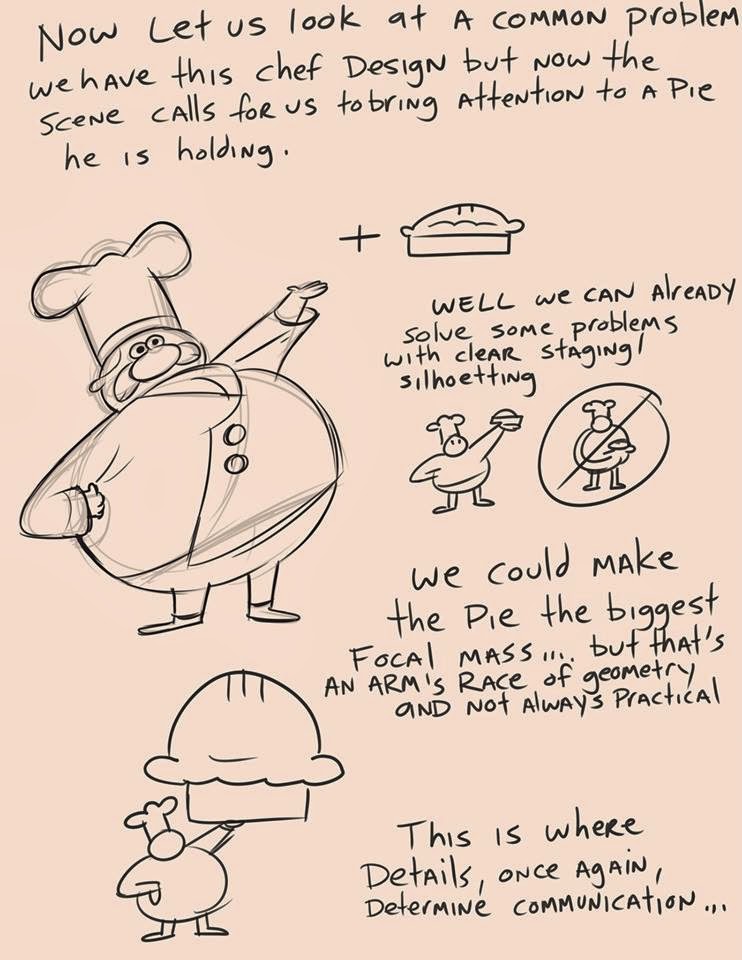 Now Let us look at A common problem
we have this chef Design but now the
scene calls for us to bring Attention to a Pie
he is holding.
+
Well we can Already
solve some problems
with clear staging/
silhoetting
We could make
the Pie the biggest
Focal mass.... but that's
an arm's Race of geometry
and not Always Practical
This is where
Details, once again,
Determine communication...